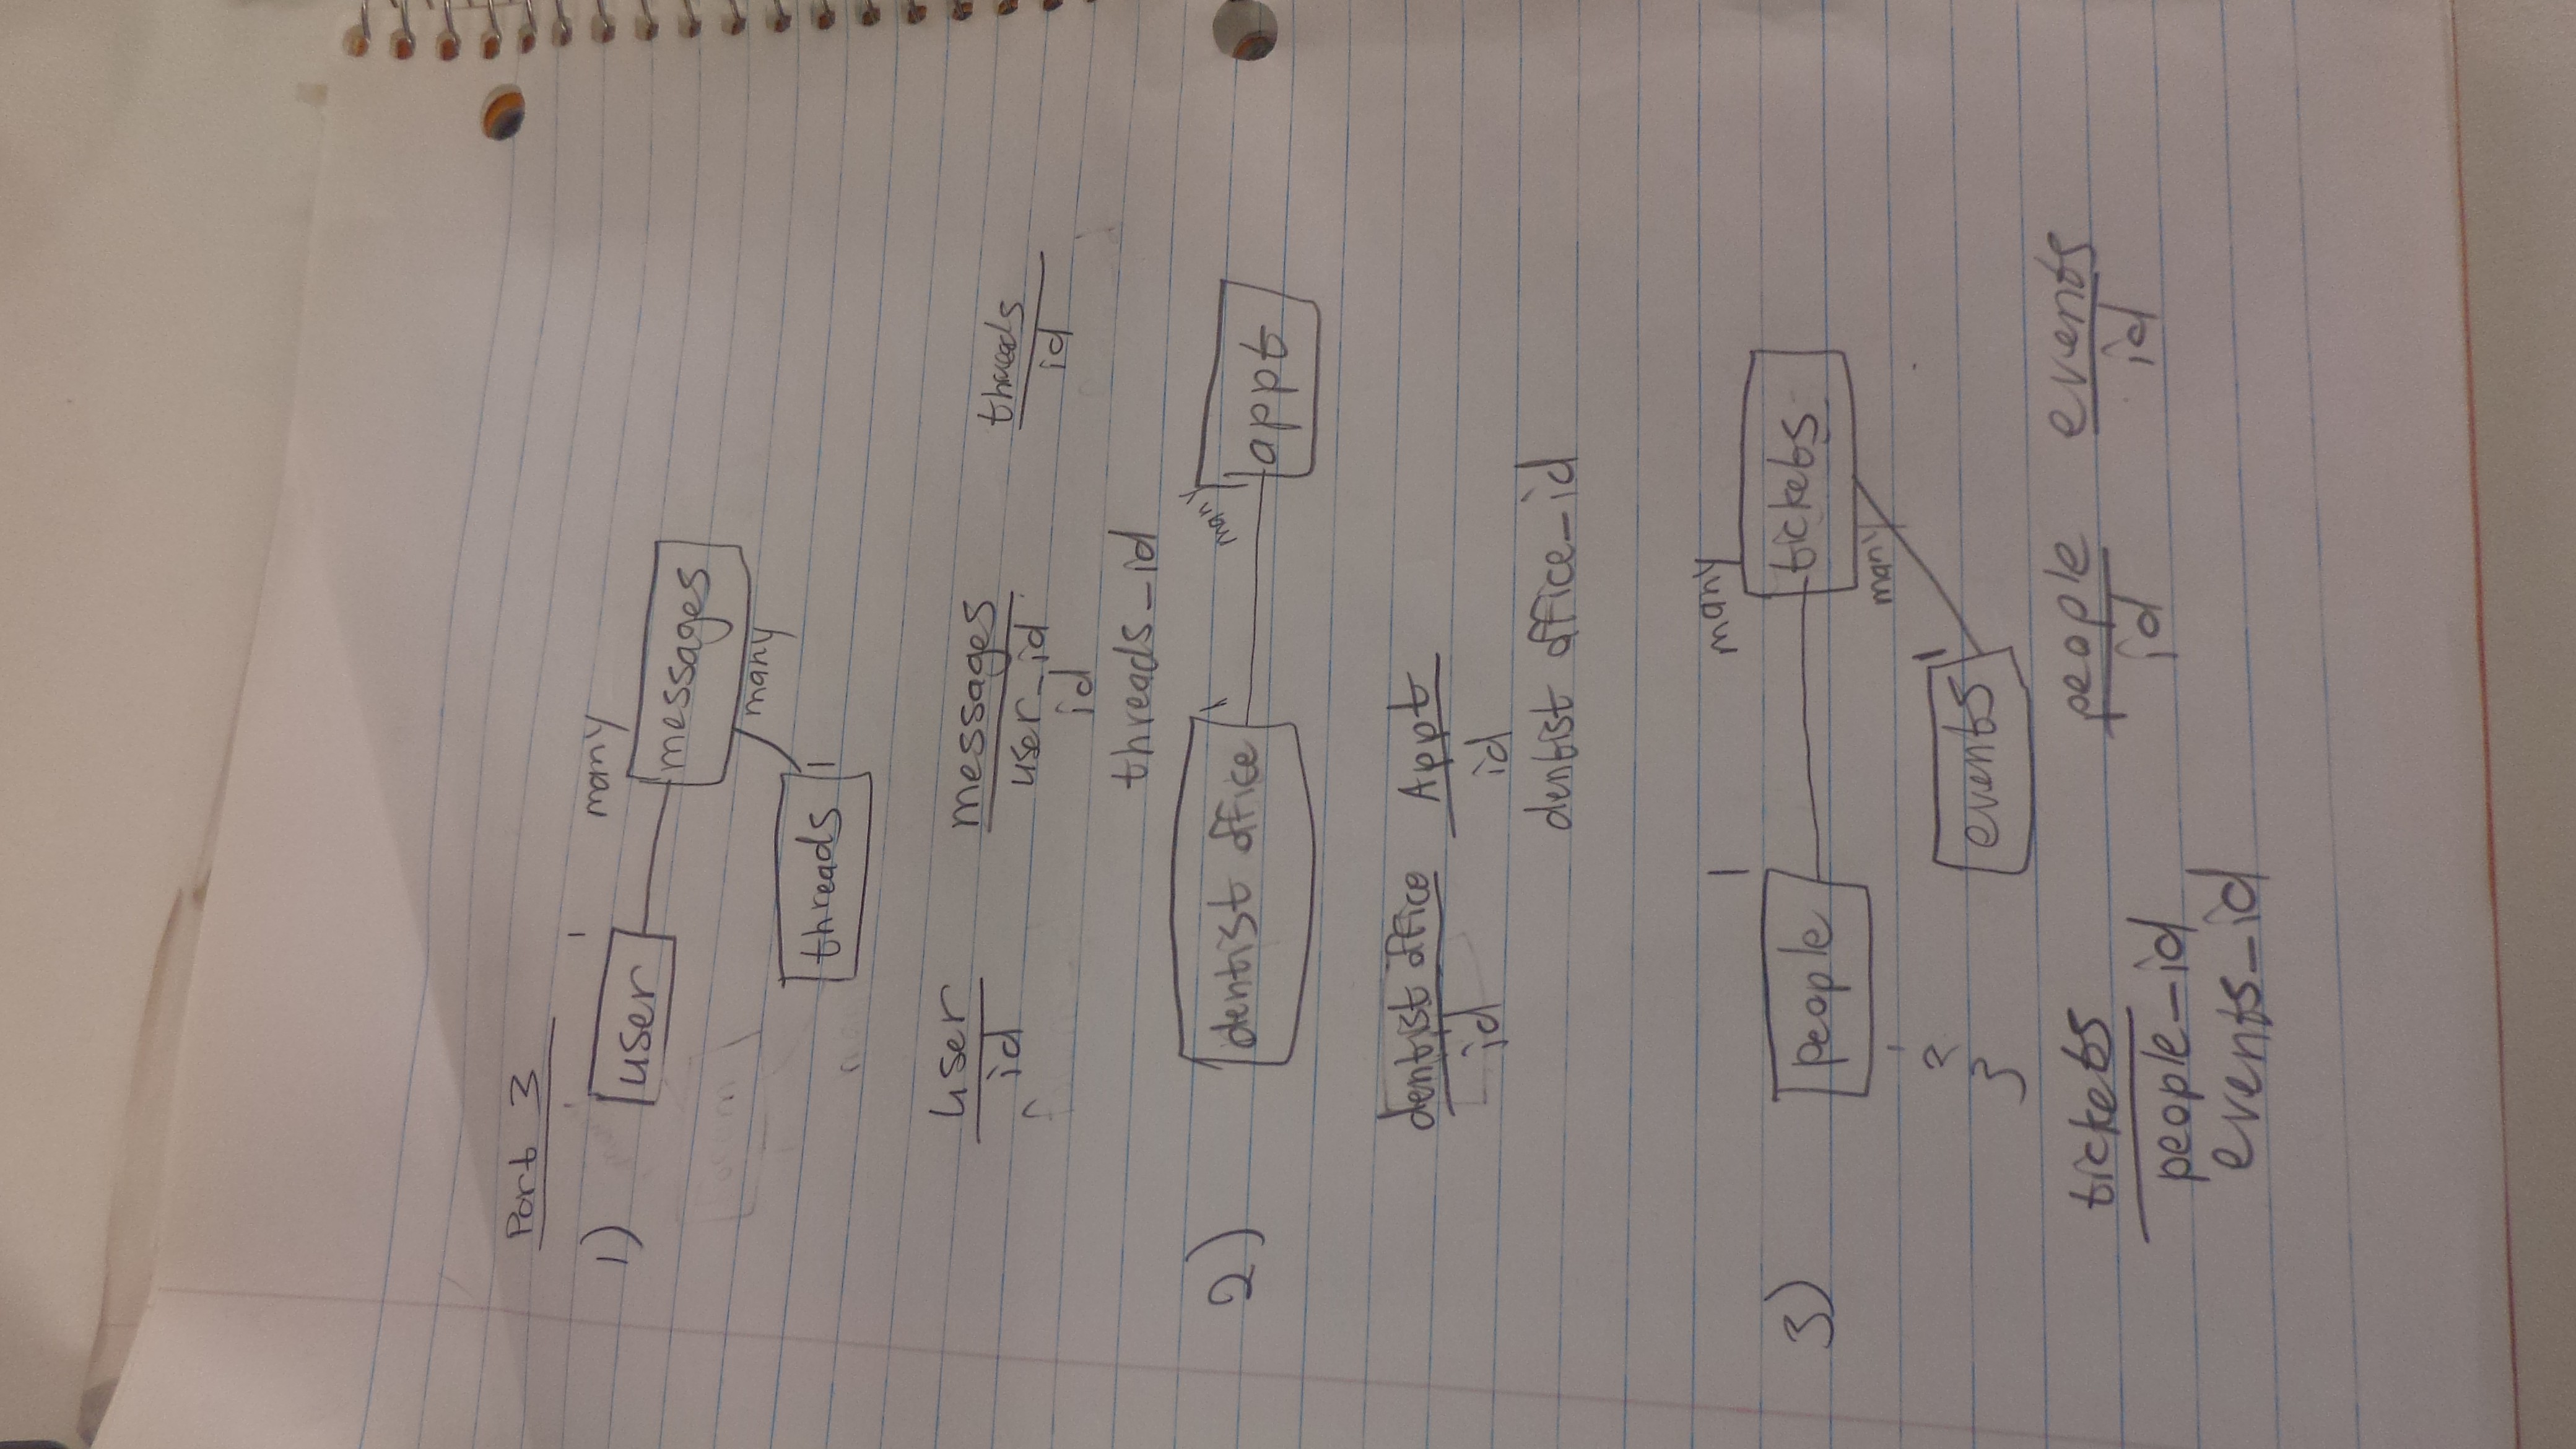 Part 3
1) user 1 many messages
many
threads 1
user messages threads
id user_id id
id
threads_id
2) dentist office 1 many appt
dentist office Appt
id id
dentist office_id
3) people 1 many tickets
many
1
events 1
2
3
tickets people events
people_id id id
events_id